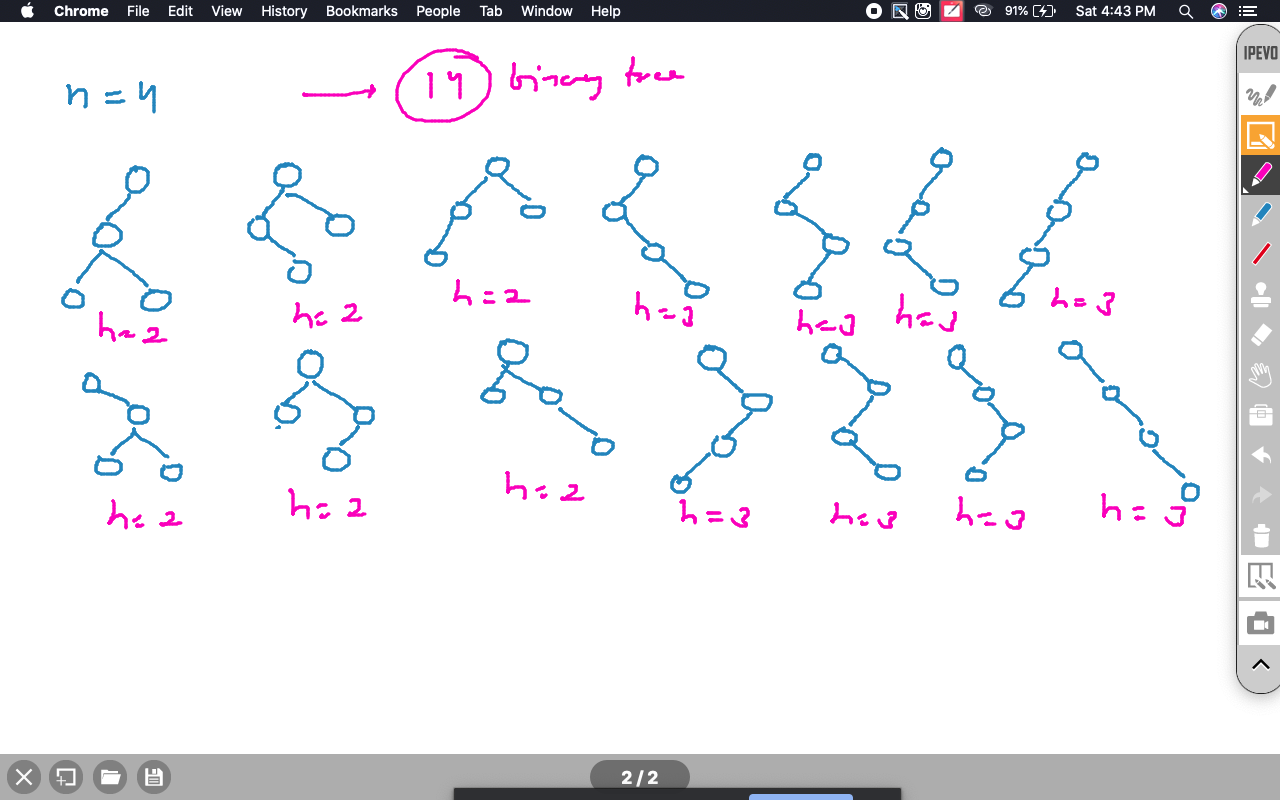 Chrome File Edit View History Bookmarks People Tab Window Help 91% Sat 4:43 PM
IPEVO
n = 4 → 14 binary tree
h = 2 h = 2 h = 2 h = 3 h = 3 h = 3 h = 3
h = 2 h = 2 h = 2 h = 3 h = 3 h = 3 h = 3
2 / 2